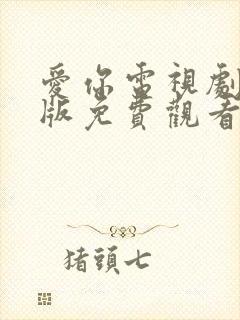 愛你電視劇
版免費觀看
猪頭七